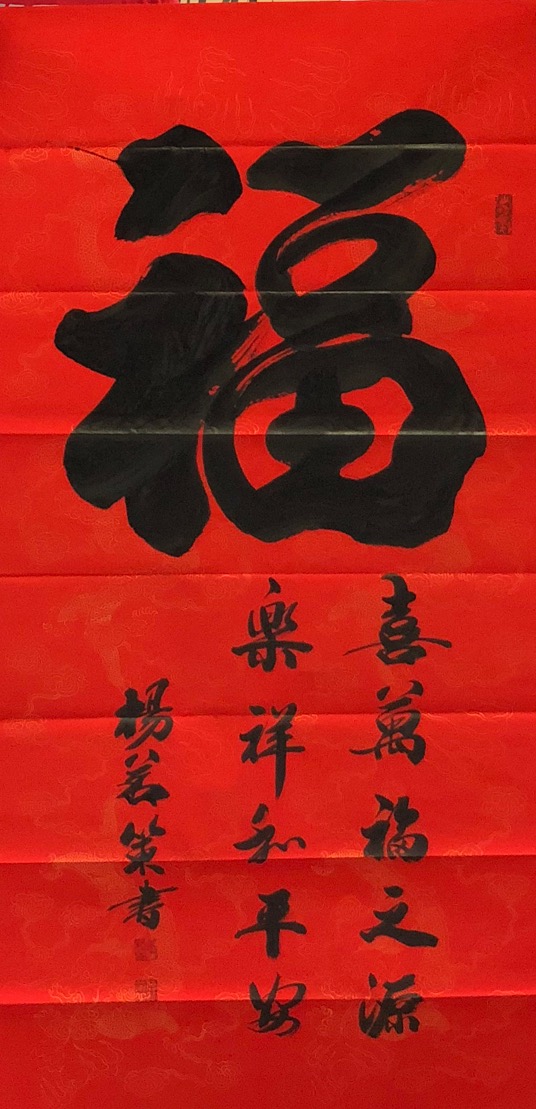 福
喜萬福之源
樂祥和平安
楊若策書